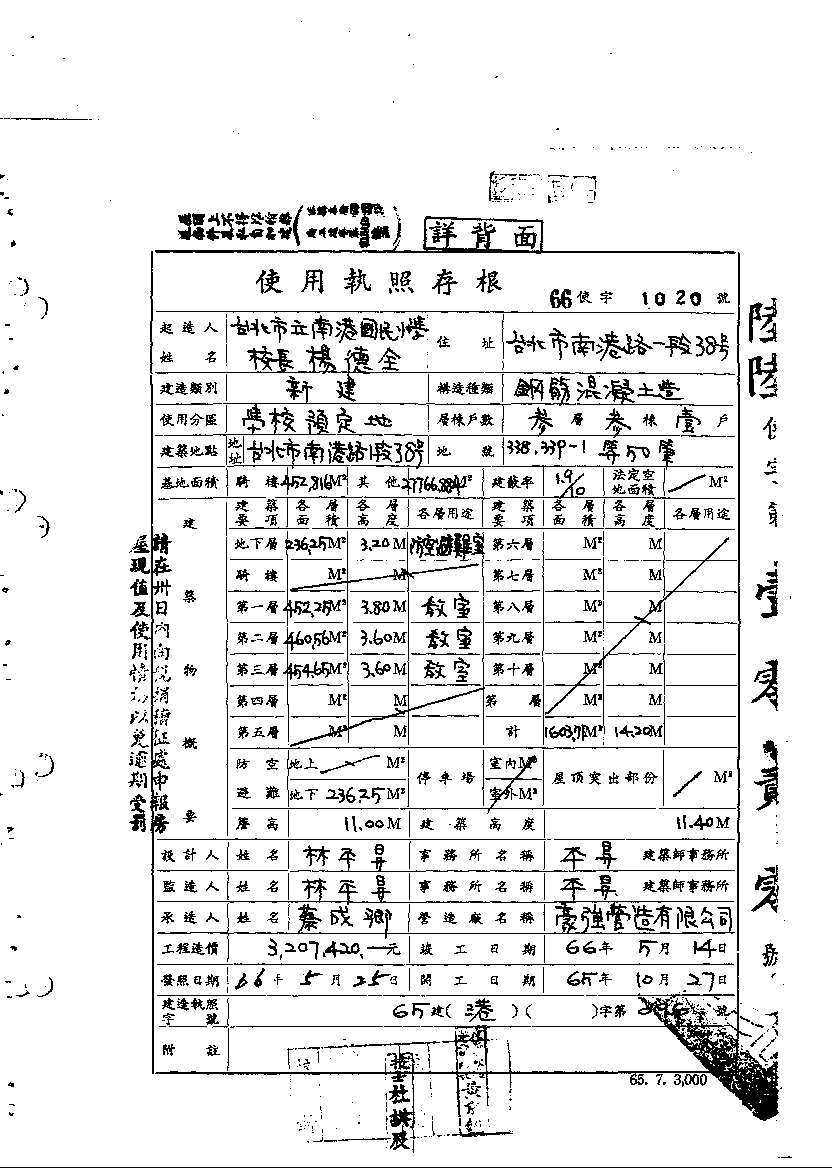 詳背面
使用執照存根
66使字 1020 號
起造人姓名 台北市立南港國民小學 校長 楊德全 住址 台北市南港路一段38号
建造類別 新建 構造種類 鋼筋混凝土造
使用分區 學校預定地 層棟戶數 叄層叄棟壹戶
建築地點 地址 台北市南港路1段38号 地號 338.339-1 等50筆
基地面積 騎樓 452.816M² 其他 27766.884M² 建蔽率 1.9/10 法定空地面積 M²
建築物概要
建築要項 各層面積 各層高度 各層用途 建築要項 各層面積 各層高度 各層用途
地下層 236.25M² 3.20M 防空避難室 第六層 M² M
騎樓 M² M 第七層 M² M
第一層 452.25M² 3.80M 教室 第八層 M² M
第二層 460.56M² 3.60M 教室 第九層 M² M
第三層 454.65M² 3.60M 教室 第十層 M² M
第四層 M² M 第 層 M² M
第五層 M² M 計 1603.71M² 14.20M
防空避難 地上 M² 停車場 室內M² 屋頂突出部份 M²
地下 236.25M² 室外M²
簷高 11.00M 建築高度 11.40M
設計人 姓名 林平昇 事務所名稱 平昇 建築師事務所
監造人 姓名 林平昇 事務所名稱 平昇 建築師事務所
承造人 姓名 蔡成鄉 營造廠名稱 豪強營造有限公司
工程造價 3,207,420.—元 竣工日期 66年5月14日
發照日期 66年5月25日 開工日期 65年10月27日
建造執照字號 65建(港)( )字第 號
附註
65. 7. 3,000
請在卅日內向稅捐稽征處申報房
屋現值及使用情形以免逾期受罰
陸陸使字第壹零貳零號